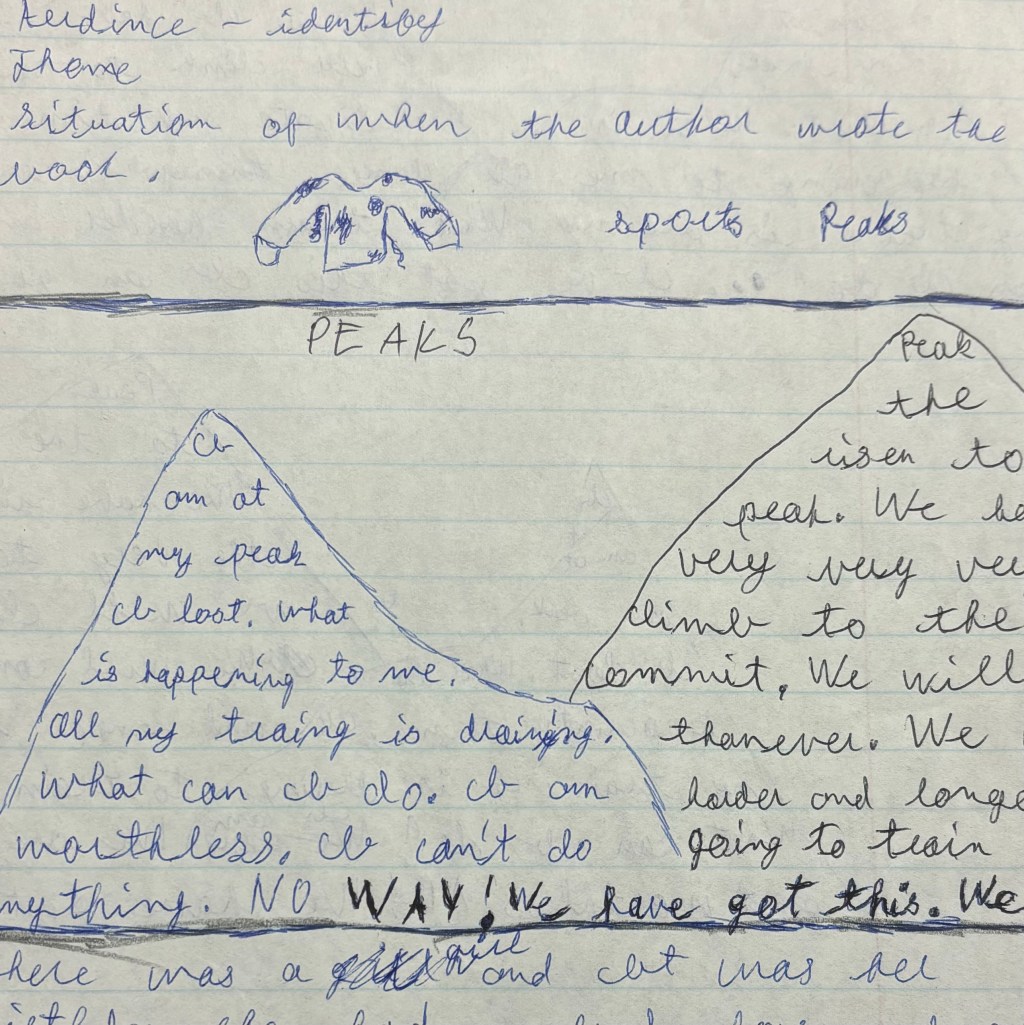 Audince - identify
Theme
situation of when the author wrote the
book.
sports Peaks
PEAKS
I
am at
my peak
I lost. What
is happening to me.
All my traing is draining.
What can I do. I am
worthless. I can't do
nything. NO WAY! We have got this. We
Peak
the
to
peak. We ha
very very ve
climb to the
commit. We will
thanever. We
and longe
going to train
here was a girl and It was her